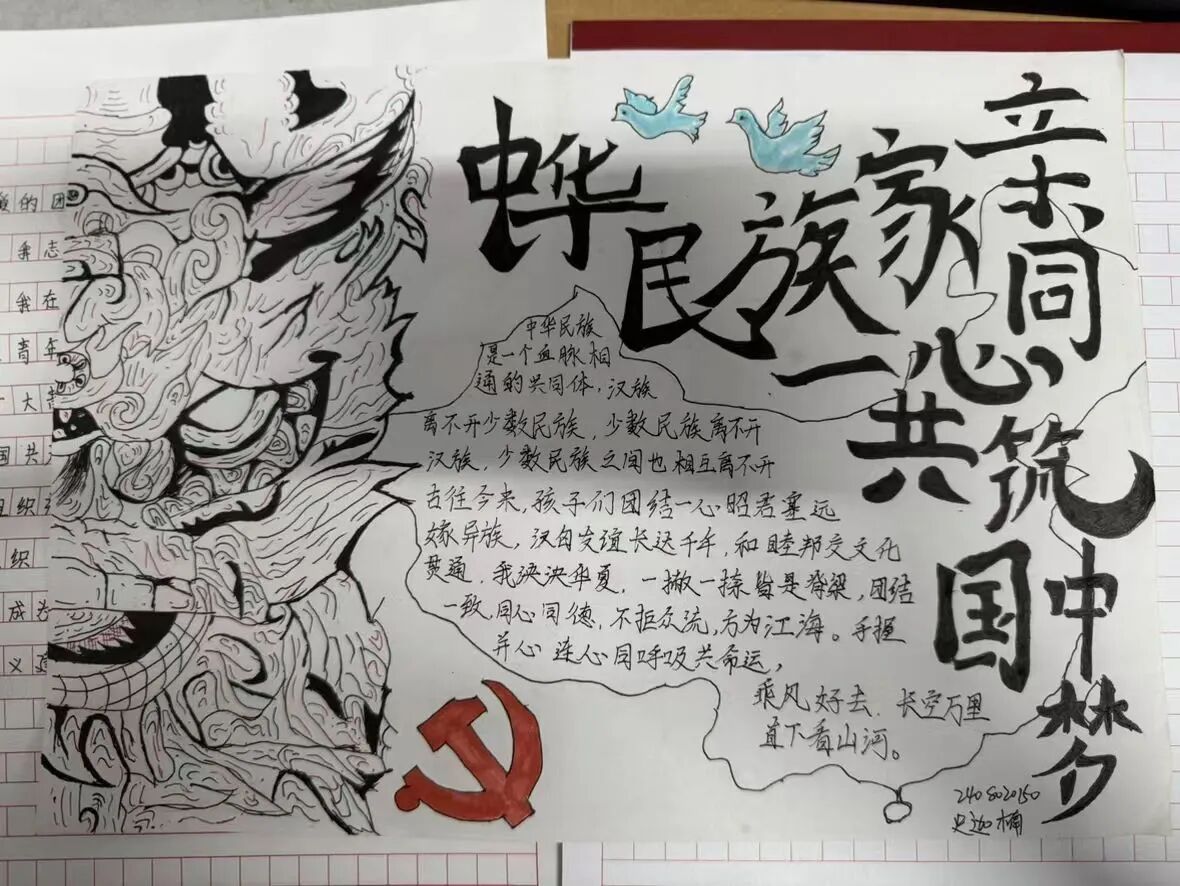 中华民族一家亲
同心共筑中国梦
中华民族
是一个血脉相
通的共同体，汉族
离不开少数民族，少数民族离不开
汉族，少数民族之间也相互离不开
古往今来，孩子们团结一心昭君塞远
嫁异族，汉匈友谊长达千年，和睦邦交文化
贯通，我泱泱华夏，一撇一捺皆是脊梁，团结
一致，同心同德，不拒众流，方为江海。手握
并心连心同呼吸共命运，
乘风好去，长空万里
直下看山河。
2408020150
史迦楠
质的团
我志
我在
青年
大
国共
组织
织
成为
义